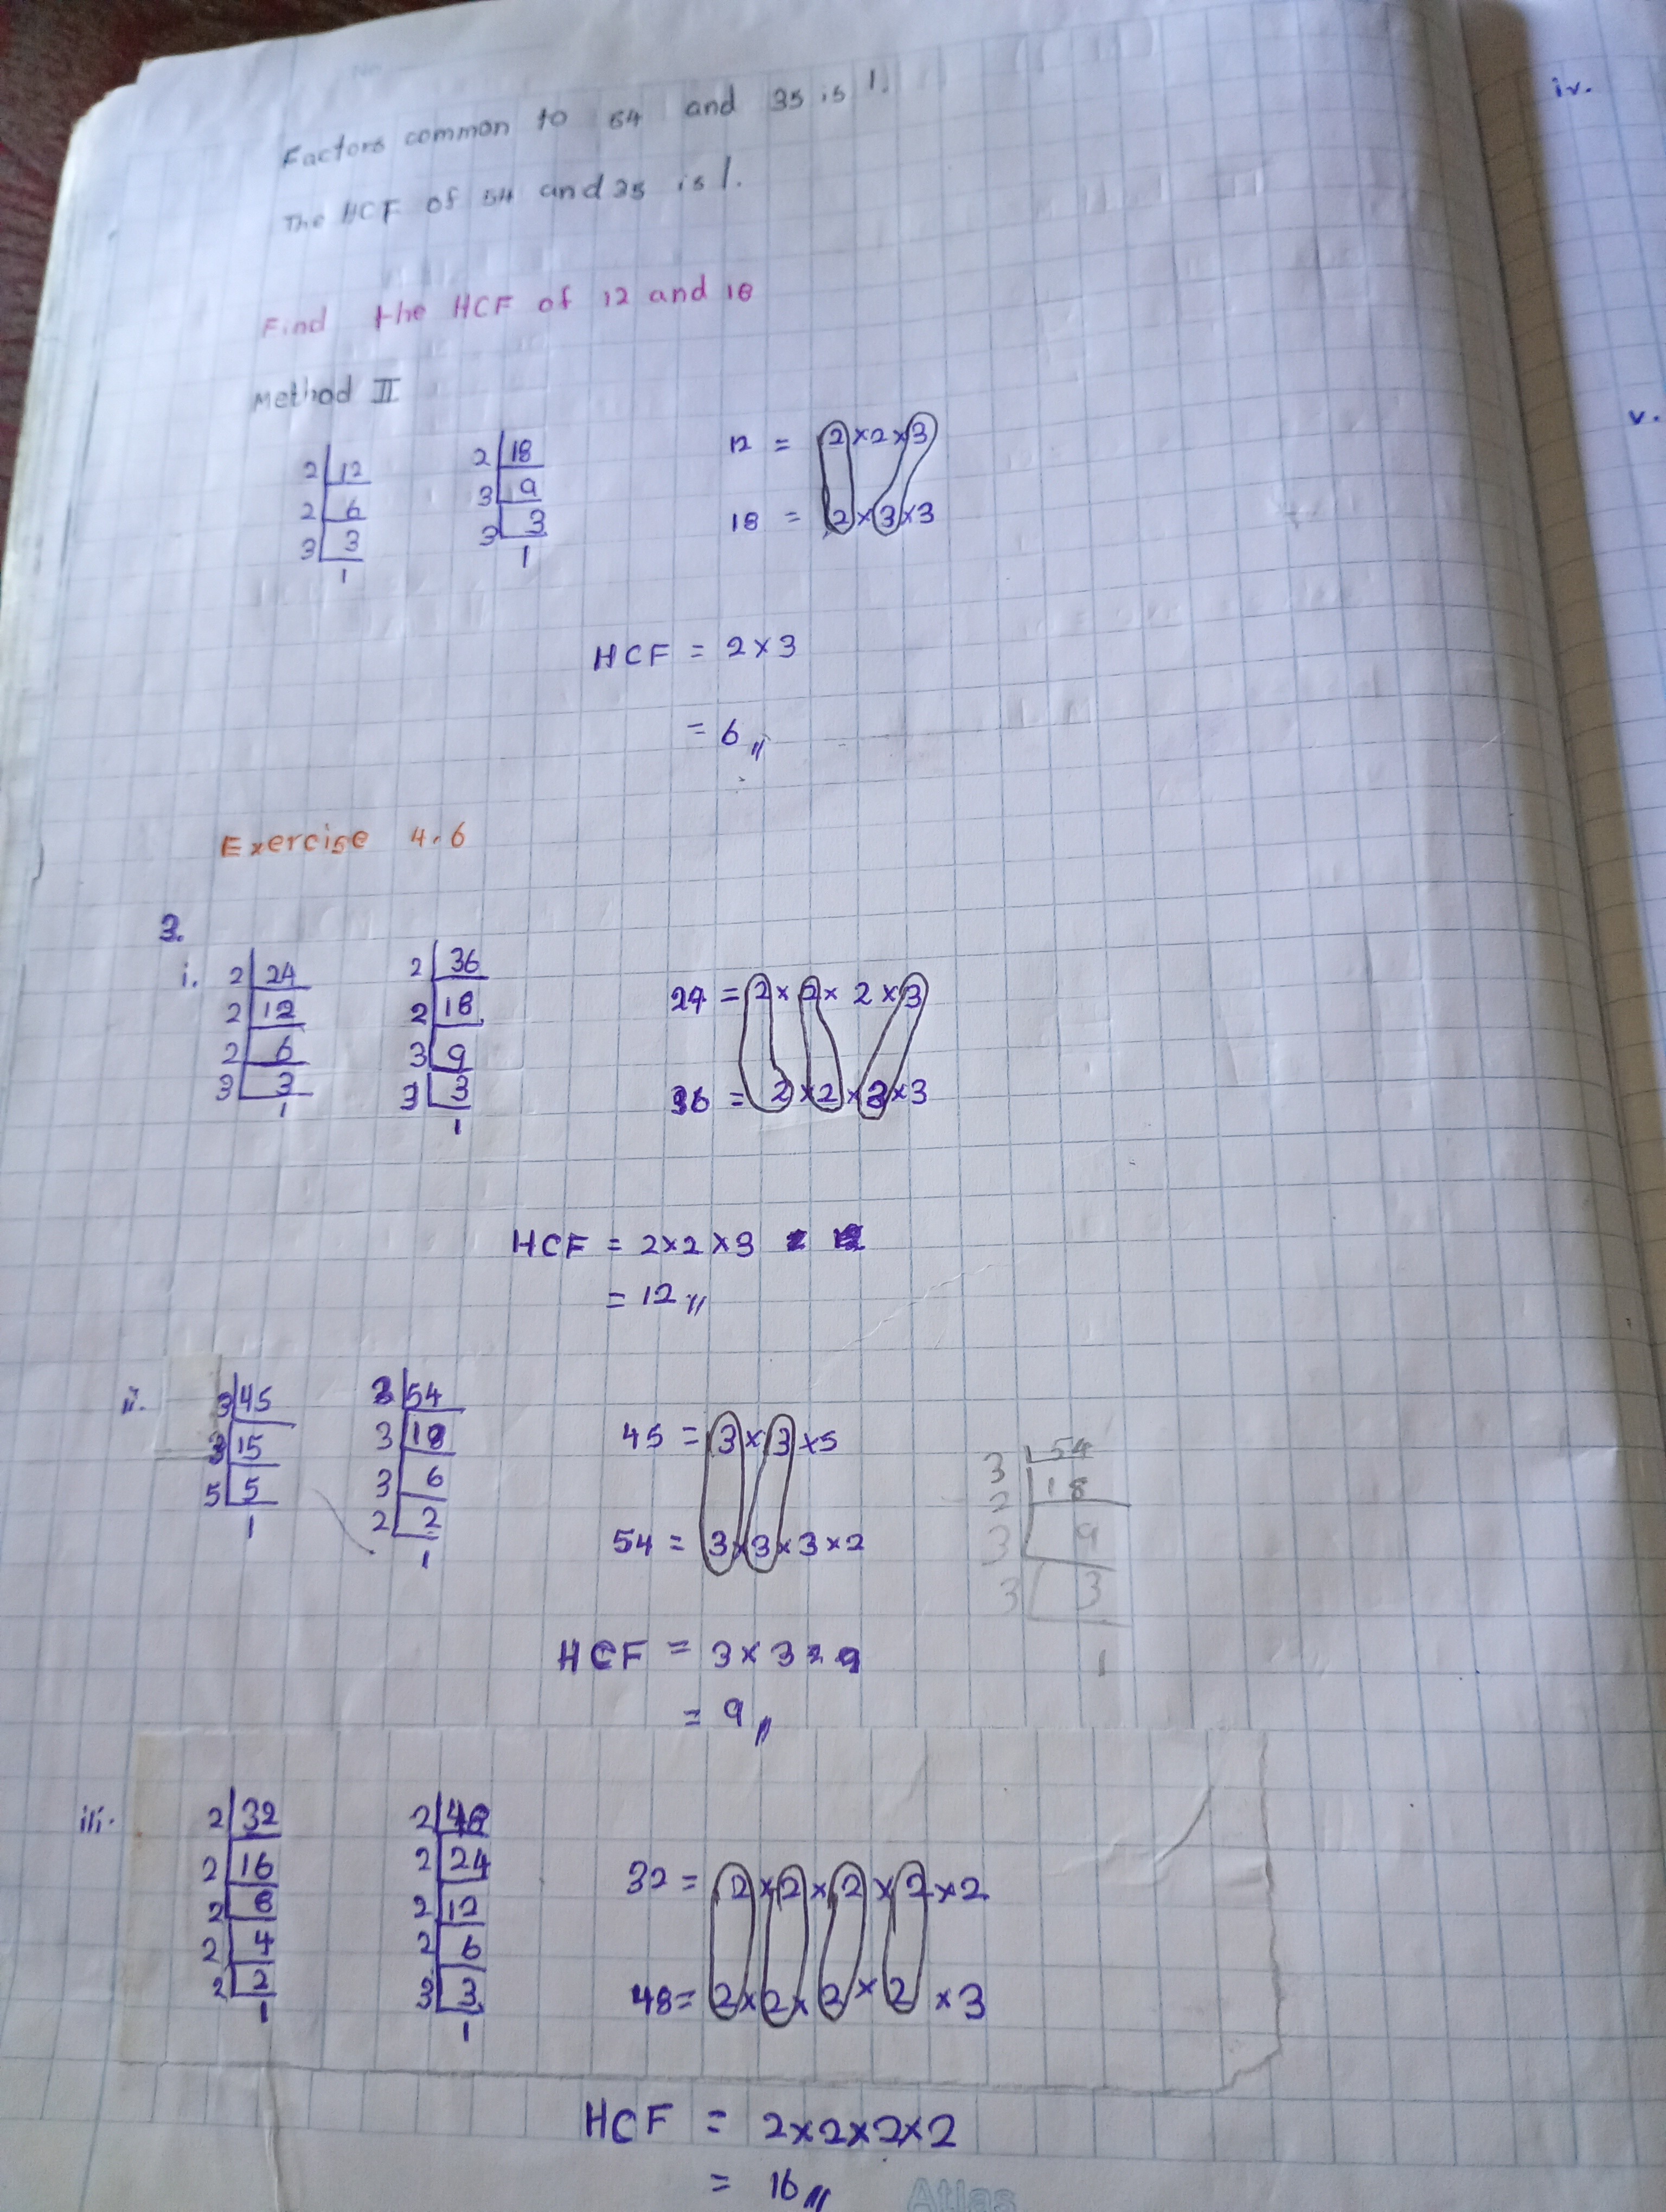 No
Factors common to 54 and 35 is 1.
The HCF of 54 and 35 is 1.
Find the HCF of 12 and 18
Method II
2 12 2 18 12 = 2×2×3
2 6 3 9
3 3 3 3 18 = 2×3×3
1 1
HCF = 2×3
= 6
Exercise 4.6
3.
i. 2 24 2 36 24 = 2×2×2×3
2 12 2 18
2 6 3 9
3 3 3 3 36 = 2×2×3×3
1 1
HCF = 2×2×3
= 12
ii. 3 45 3 54 45 = 3×3×5
3 15 3 18 3 54
5 5 3 6 2 18
1 2 2 54 = 3×3×3×2 3 9
1 3 3
1
HCF = 3×3 = 9
= 9
iii. 2 32 2 48
2 16 2 24 32 = 2×2×2×2×2
2 8 2 12
2 4 2 6
2 2 3 3 48 = 2×2×2×2×3
1 1
HCF = 2×2×2×2
= 16
Atlas
iv.
v.